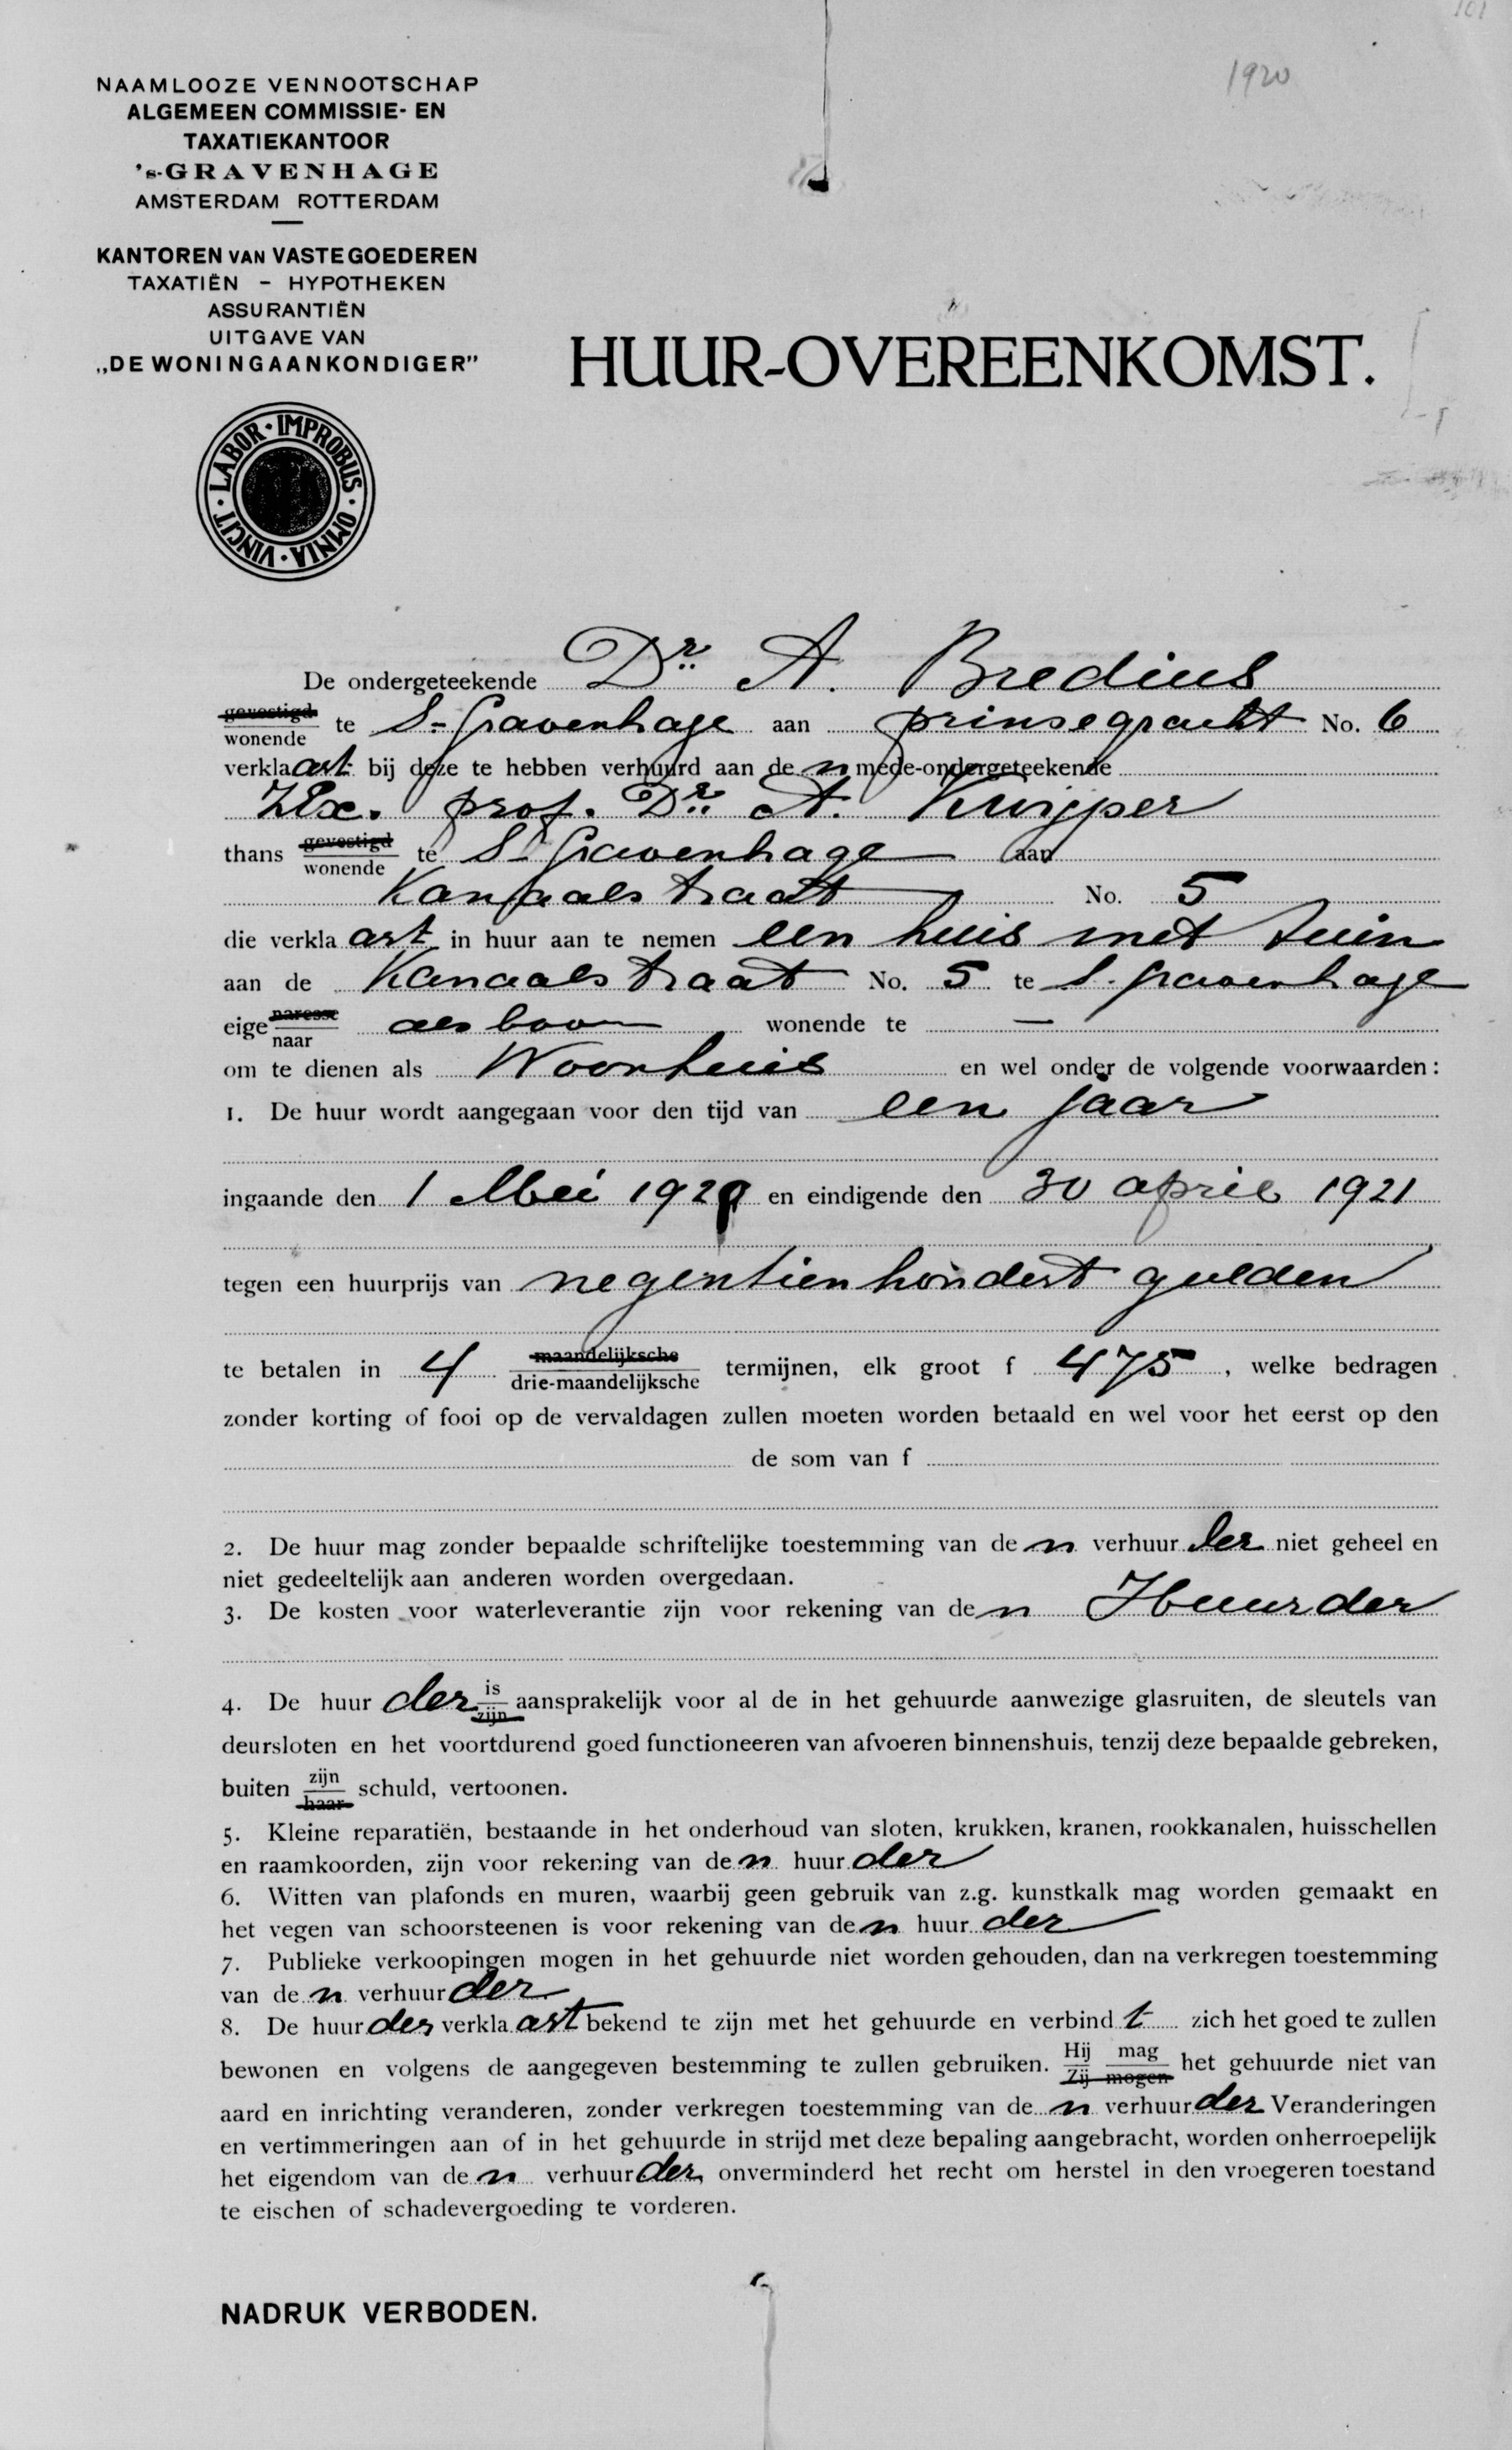 101
1920
NAAMLOOZE VENNOOTSCHAP
ALGEMEEN COMMISSIE- EN
TAXATIEKANTOOR
's-GRAVENHAGE
AMSTERDAM ROTTERDAM
KANTOREN VAN VASTE GOEDEREN
TAXATIËN – HYPOTHEKEN
ASSURANTIËN
UITGAVE VAN
„DE WONINGAANKONDIGER”
HUUR-OVEREENKOMST.
LABOR · IMPROBUS · OMNIA · VINCIT ·
De ondergeteekende Dr. A. Bredius
gevestigd
wonende te S-Gravenhage aan prinsegracht No. 6
verklaart bij deze te hebben verhuurd aan den mede-ondergeteekende
ZEx. prof. Dr. A. Kuijper
thans gevestigd
wonende te S-Gravenhage aan
Kanaalstraat No. 5
die verklaart in huur aan te nemen een huis met tuin
aan de Kanaalstraat No. 5 te S. gravenhage
eigenaresse
naar als boven wonende te —
om te dienen als Woonhuis en wel onder de volgende voorwaarden:
1. De huur wordt aangegaan voor den tijd van een jaar
ingaande den 1 Mei 1920 en eindigende den 30 april 1921
tegen een huurprijs van negentienhondert gulden
te betalen in 4 maandelijksche
drie-maandelijksche termijnen, elk groot f 475, welke bedragen
zonder korting of fooi op de vervaldagen zullen moeten worden betaald en wel voor het eerst op den
de som van f
2. De huur mag zonder bepaalde schriftelijke toestemming van den verhuurder niet geheel en
niet gedeeltelijk aan anderen worden overgedaan.
3. De kosten voor waterleverantie zijn voor rekening van den Huurder
4. De huurder is
zijn aansprakelijk voor al de in het gehuurde aanwezige glasruiten, de sleutels van
deursloten en het voortdurend goed functioneeren van afvoeren binnenshuis, tenzij deze bepaalde gebreken,
buiten zijn
haar schuld, vertoonen.
5. Kleine reparatiën, bestaande in het onderhoud van sloten, krukken, kranen, rookkanalen, huisschellen
en raamkoorden, zijn voor rekening van den huurder
6. Witten van plafonds en muren, waarbij geen gebruik van z.g. kunstkalk mag worden gemaakt en
het vegen van schoorsteenen is voor rekening van den huurder
7. Publieke verkoopingen mogen in het gehuurde niet worden gehouden, dan na verkregen toestemming
van den verhuurder
8. De huurder verklaart bekend te zijn met het gehuurde en verbindt zich het goed te zullen
bewonen en volgens de aangegeven bestemming te zullen gebruiken. Hij mag
Zij mogen het gehuurde niet van
aard en inrichting veranderen, zonder verkregen toestemming van den verhuurder Veranderingen
en vertimmeringen aan of in het gehuurde in strijd met deze bepaling aangebracht, worden onherroepelijk
het eigendom van den verhuurder, onverminderd het recht om herstel in den vroegeren toestand
te eischen of schadevergoeding te vorderen.
NADRUK VERBODEN.